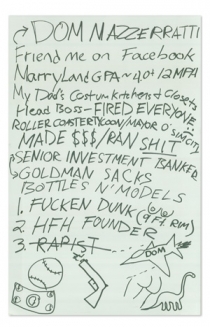 DOM NAZZERRATTI
Friend me on Facebook
MarryLand GPA ~ 4.0+ /2 MPA
My Dad's Costum kitchens & Closets
Head Boss - FIRED EVERYONE
ROLLER COASTERTYCOON/MAYOR O' SIMCITY
MADE $$$/RAN SHIT
SENIOR INVESTMENT BANKER
GOLDMAN SACKS
BOTTLES N' MODELS
1. FUCKEN DUNK (9 FT. RIM)
2. HFH FOUNDER
3. RAPIST
DOM